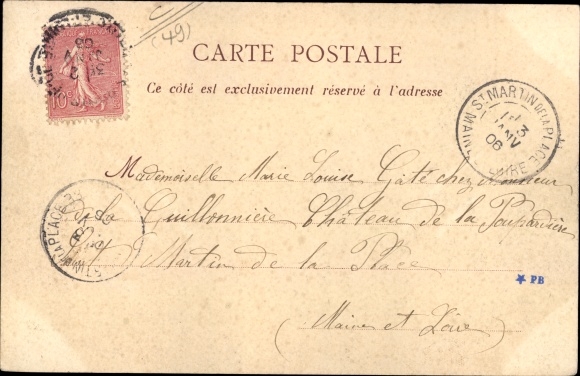 (49)
CARTE POSTALE
Ce côté est exclusivement réservé à l'adresse
10
ST MARTIN DE LA PLACE
MAINE
LOIRE
3
JANV
06
Mademoiselle Marie Louise Gâté chez Monsieur
de la Guillonnière Château de la Poupardière
Saint Martin de la Place
(Maine et Loire)
LA PLACE
PB